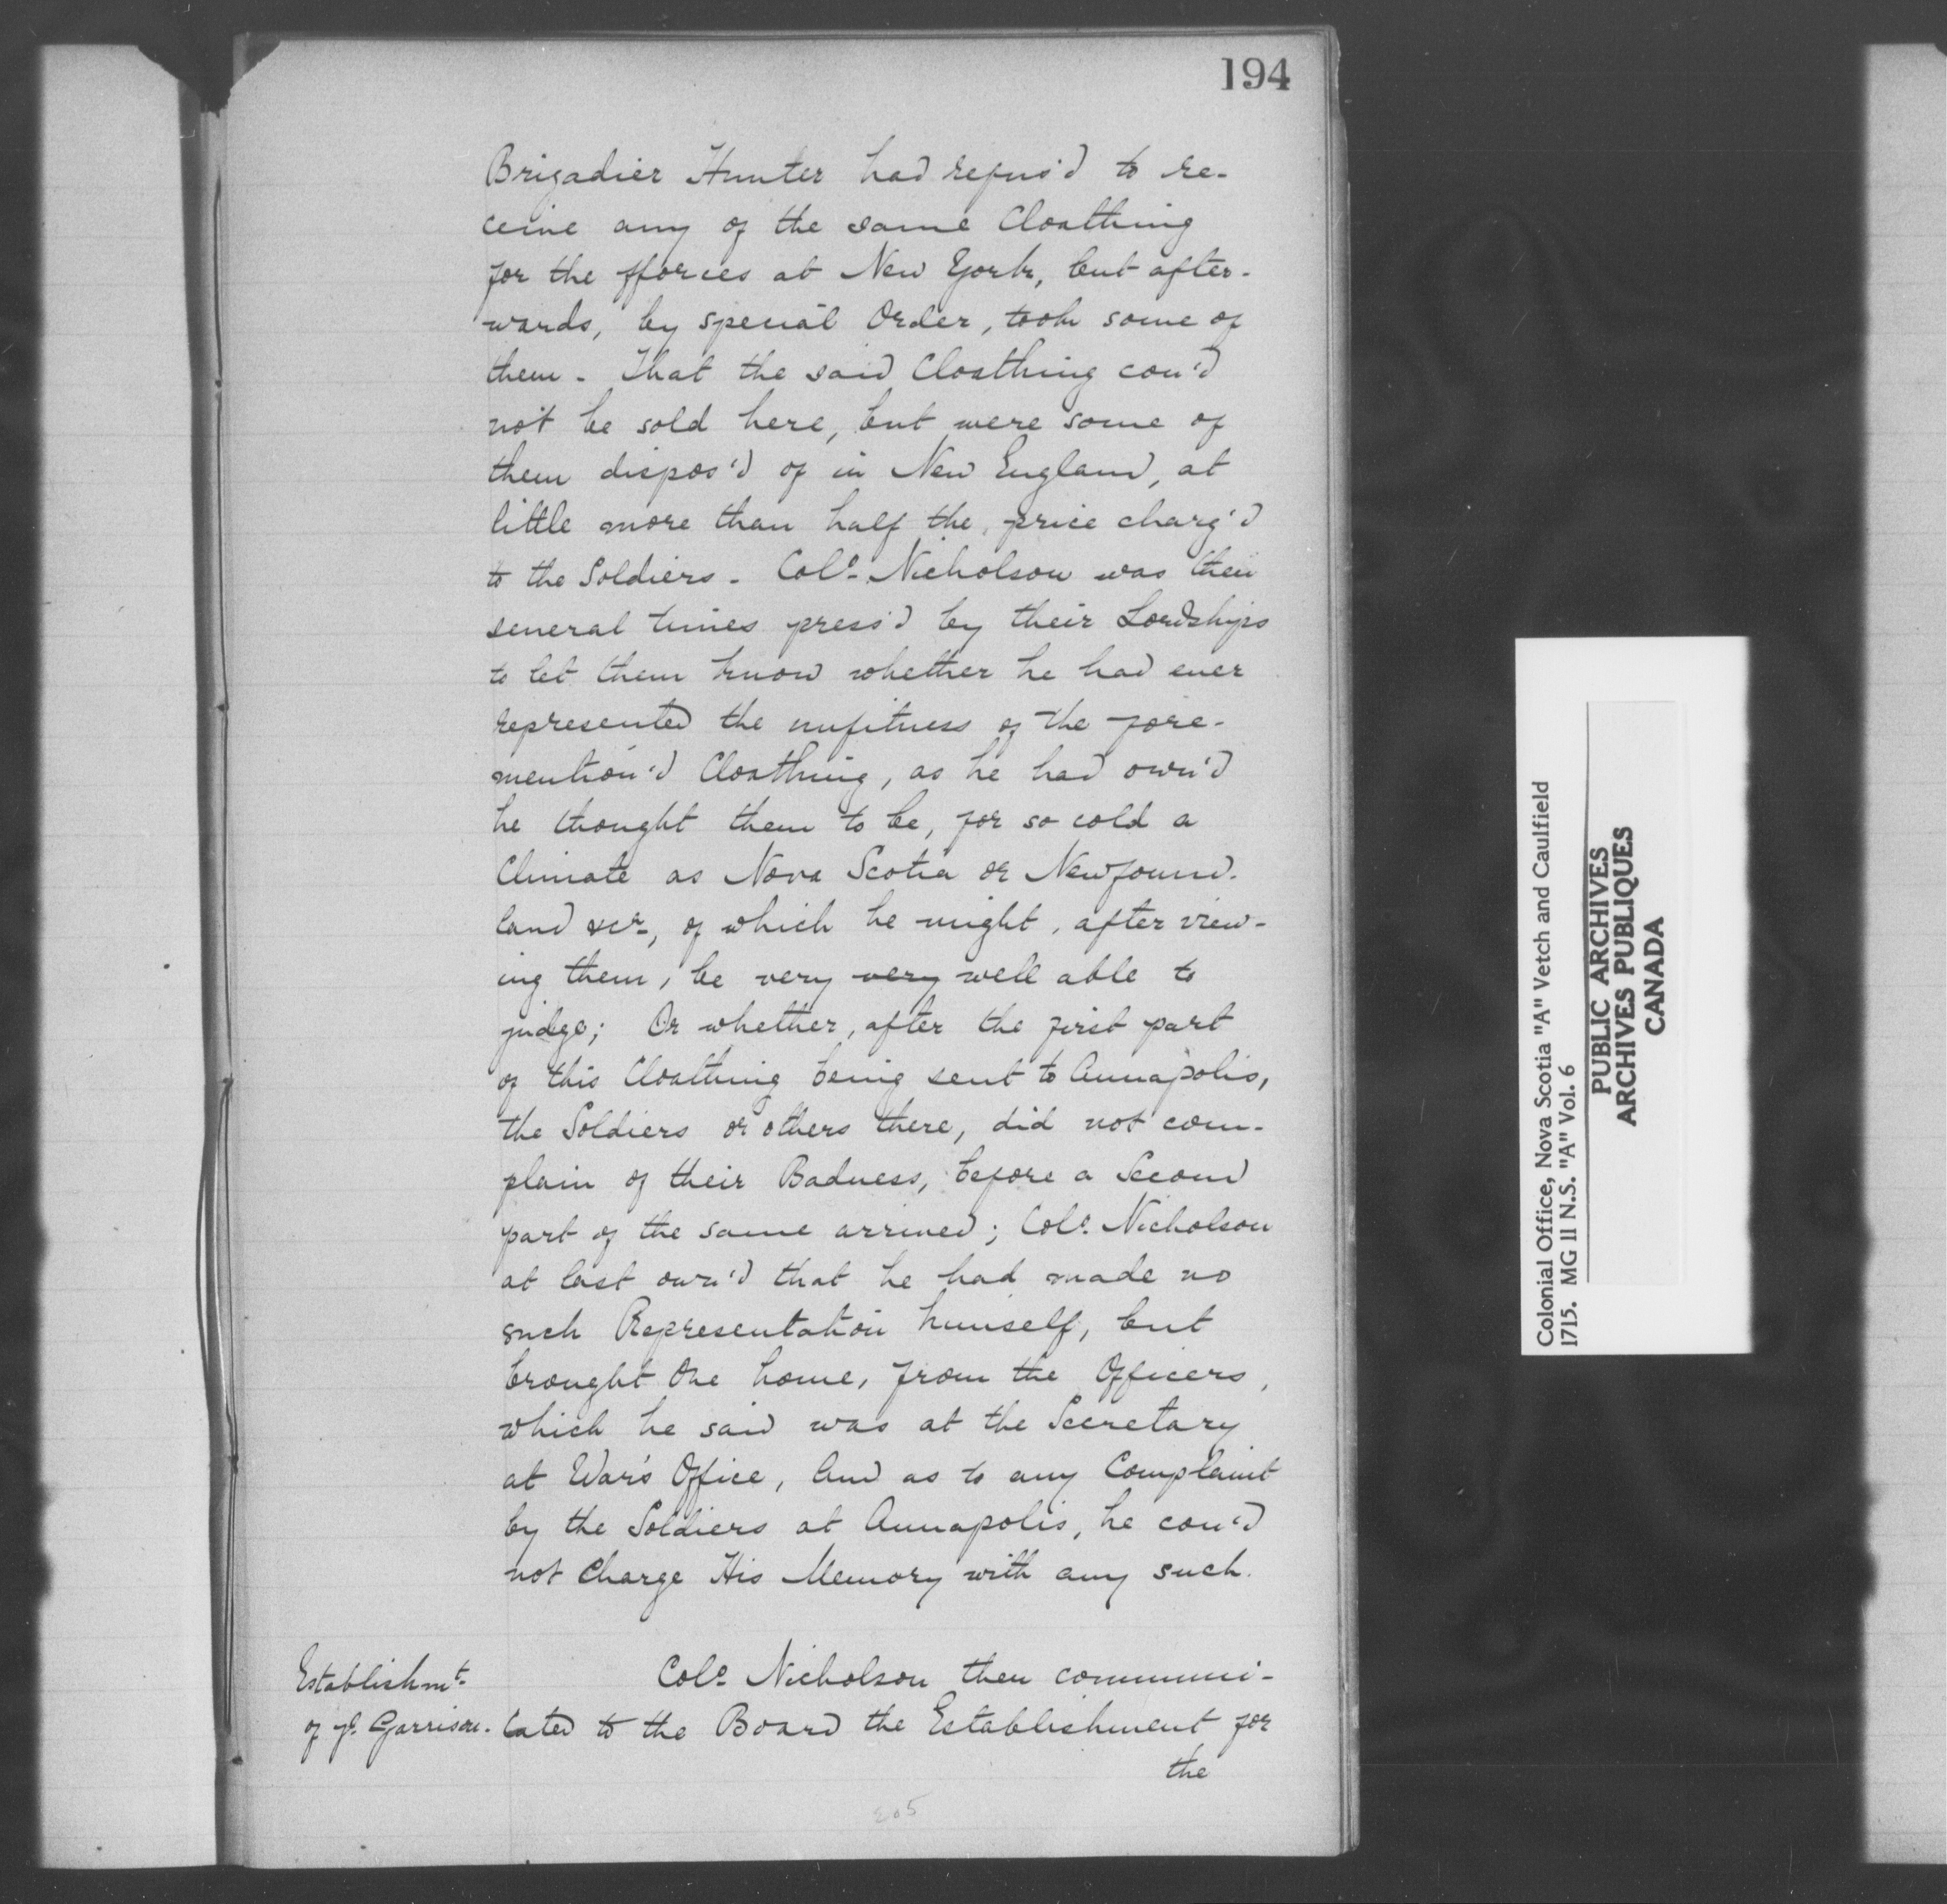 194
Brigadier Hunter had refus'd to re-
ceive any of the same Cloathing
for the fforces at New York, but after-
wards, by special Order, took some of
them - That the said Cloathing cou'd
not be sold here, but were some of
them dispos'd of in New England, at
little more than half the price charg'd
to the Soldiers - Colo. Nicholson was then
several times press'd by their Lordships
to let them know whether he had ever
represented the unfitness of the fore-
mention'd Cloathing, as he had own'd
he thought them to be, for so cold a
Climate as Nova Scotia or Newfound-
land &ca, of which he might, after view-
ing them, be very very well able to
judge; Or whether, after the first part
of this Cloathing being sent to Annapolis,
the Soldiers or others there, did not com-
plain of their Badness, before a Second
part of the same arrived; Colo. Nicholson
at last own'd that he had made no
such Representation himself, but
brought One home, from the Officers,
which he said was at the Secretary
at War's Office, And as to any Complaint
by the Soldiers at Annapolis, he cou'd
not Charge His Memory with any such.
Establishmt.
of ye. Garrison.
Colo. Nicholson then communi-
cated to the Board the Establishment for
the
205
Colonial Office, Nova Scotia "A" Vetch and Caulfield
1715. MG II N.S. "A" Vol. 6
PUBLIC ARCHIVES
ARCHIVES PUBLIQUES
CANADA